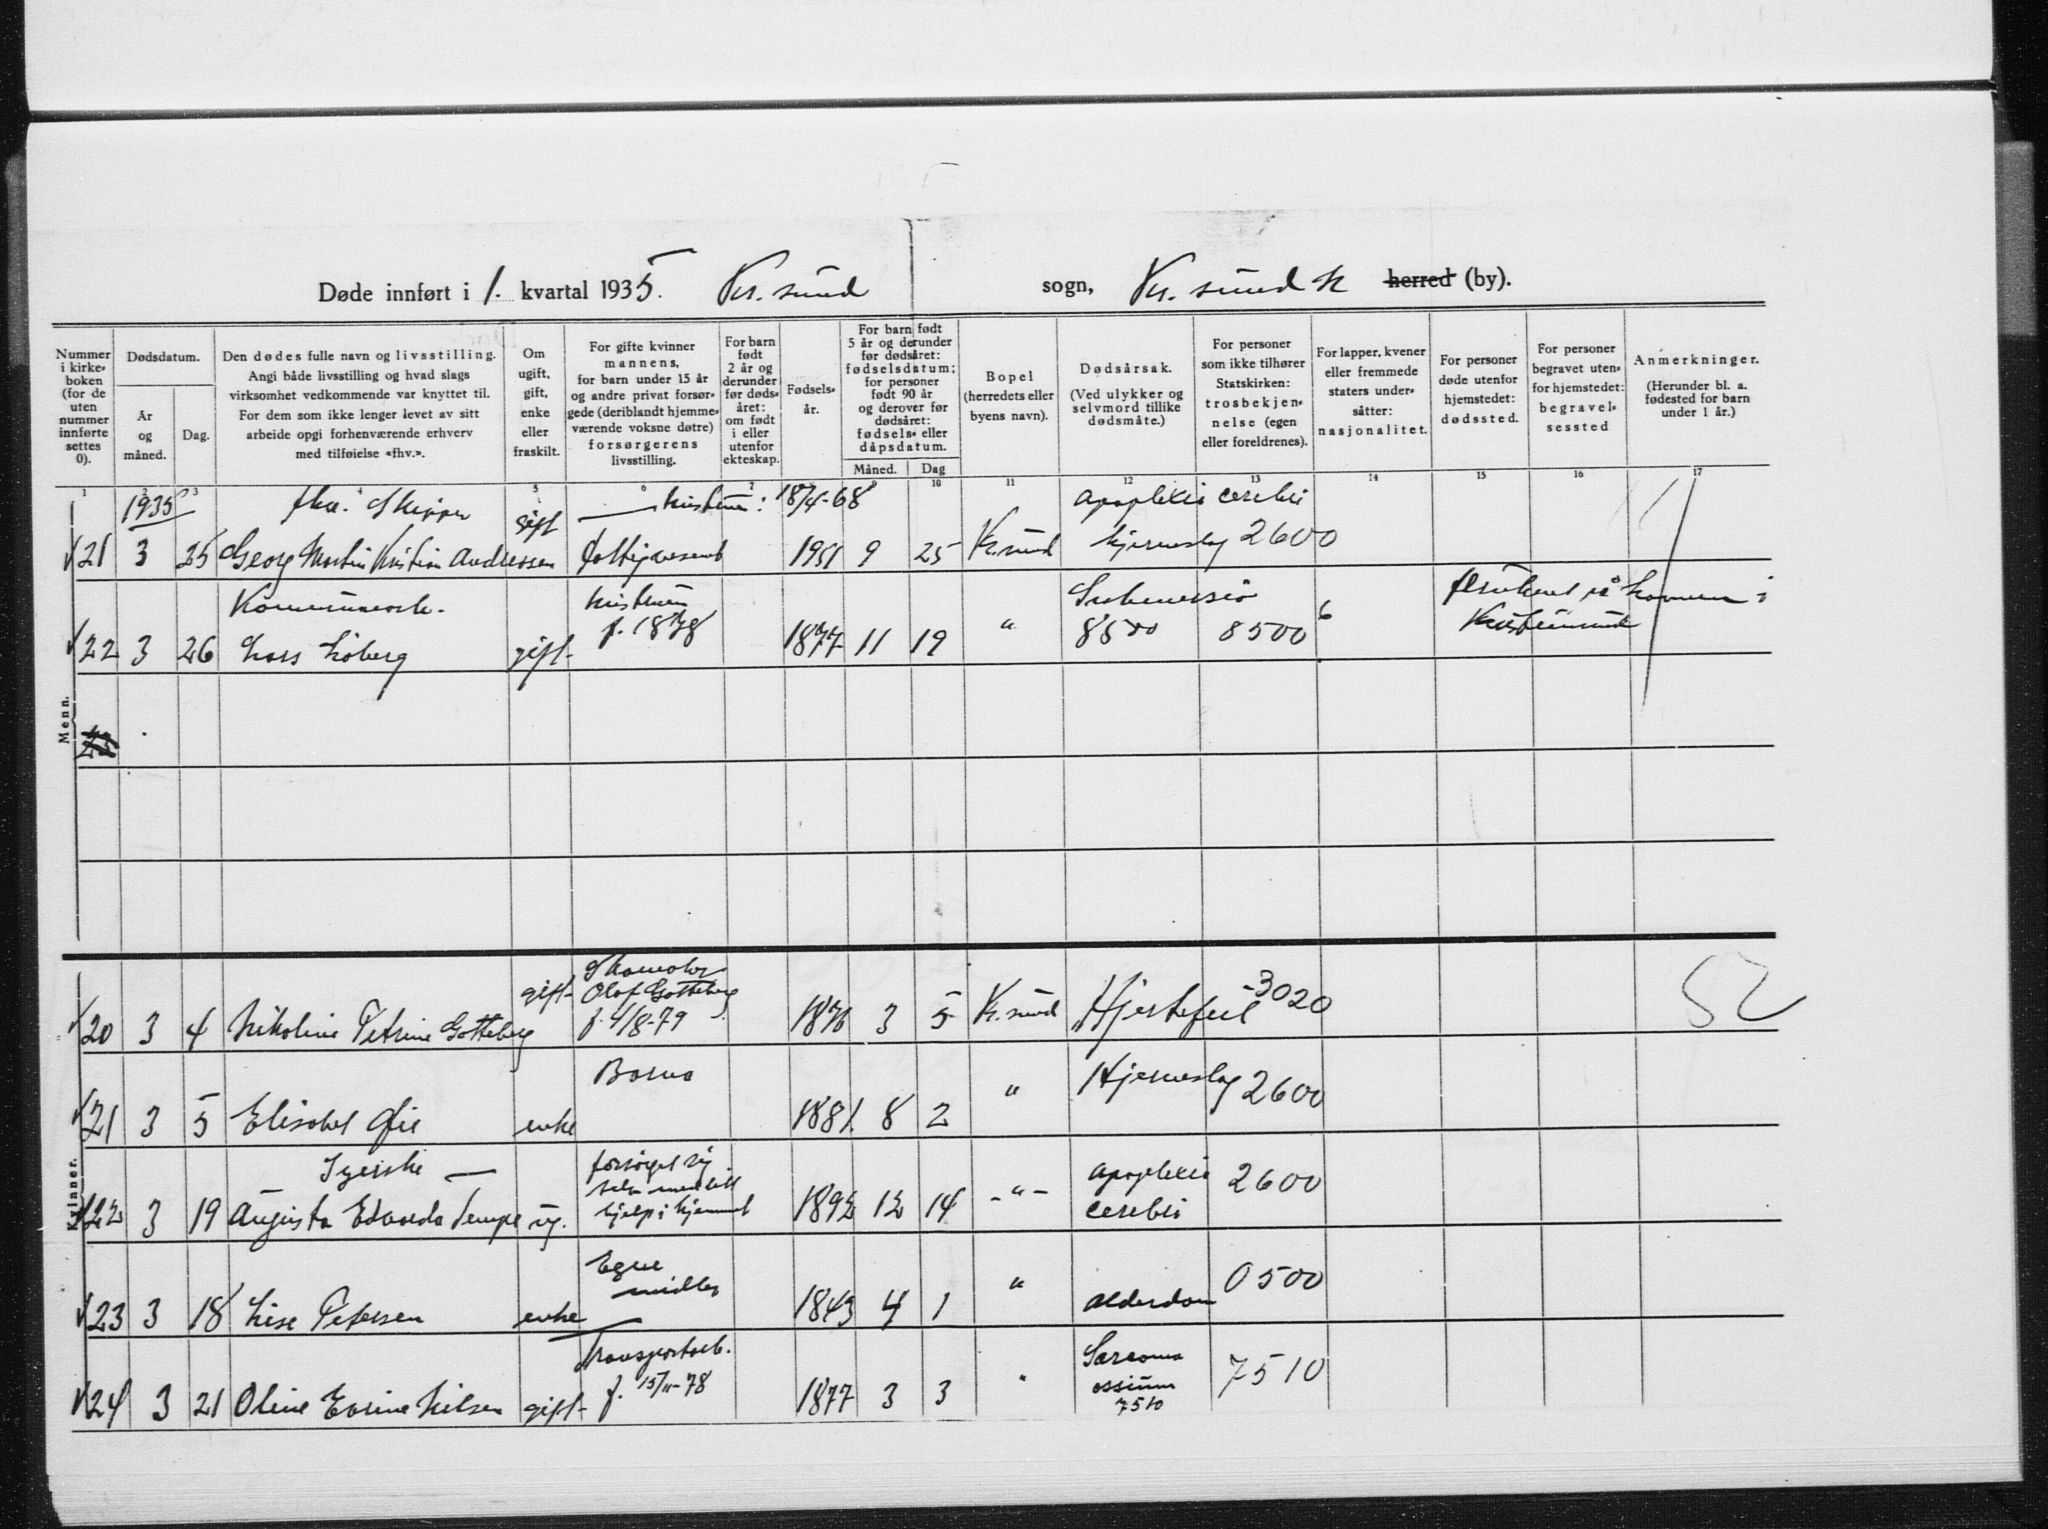 Døde innført i 1. kvartal 1935. Kr. sund sogn, Kr. sund N herred (by).
Nummer i kirke-boken (for de uten nummer innførte settes 0).
Dødsdatum.
År og måned.
Dag.
Den dødes fulle navn og livsstilling. Angi både livsstilling og hvad slags virksomhet vedkommende var knyttet til. For dem som ikke lenger levet av sitt arbeide opgi forhenværende erhverv med tilføielse «fhv.».
Om ugift, gift, enke eller fraskilt.
For gifte kvinner mannens, for barn under 15 år og andre privat forsør-gede (deriblandt hjemme-værende voksne døtre) forsørgerens livsstilling.
For barn født 2 år og derunder før døds-året: om født i eller utenfor ekteskap.
Fødsels-år.
For barn født 5 år og derunder før dødsåret: fødselsdatum; for personer født 90 år og derover før dødsåret: fødsels- eller dåpsdatum.
Måned.
Dag
Bopel (herredets eller byens navn).
Dødsårsak. (Ved ulykker og selvmord tillike dødsmåte.)
For personer som ikke tilhører Statskirken: trosbekjen-nelse (egen eller foreldrenes).
For lapper, kvener eller fremmede staters under-såtter: nasjonalitet.
For personer døde utenfor hjemstedet: dødssted.
For personer begravet uten-for hjemstedet: begravel-sessted
Anmerkninger. (Herunder bl. a. fødested for barn under 1 år.)
1 2 3 4 5 6 7 8 9 10 11 12 13 14 15 16 17
Menn.
1935 fhv. Skipper gift hustruen: 18/4-68 apoplexia cerebri
21 3 25 Georg Martin Kristian Andreassen 9 25 Kr. sund hjerneslag 2600
Kommunearb. hustruen f. 1878 Submersio i
22 3 26 Lars Loberg gift 1877 11 19 " 8500 8500 6 Kristiansund
23
Kvinner.
gift Skomaker Olaf Gotteberg f. 4/8-79
20 3 4 Nikoline Petrine Gotteberg 1876 3 5 Kr. sund Hjertefeil 3020
21 3 5 Elisabet enke 1881 8 2 " Hjerneslag 2600
Syerske — forsørget sig selv med litt hjelp i hjemmet apoplexia cerebri 2600
22 3 19 Augusta Edvarda Tempe ug. 1892 12 14 -"-
Egne midler
23 3 18 Lise Petersen enke 1843 4 1 " alderdom 0500
Transportarb. f. 15/11-78 Sarcoma ossium 7510
24 3 21 Oline Evrine Nilsen gift 1877 3 3 " 7510
52